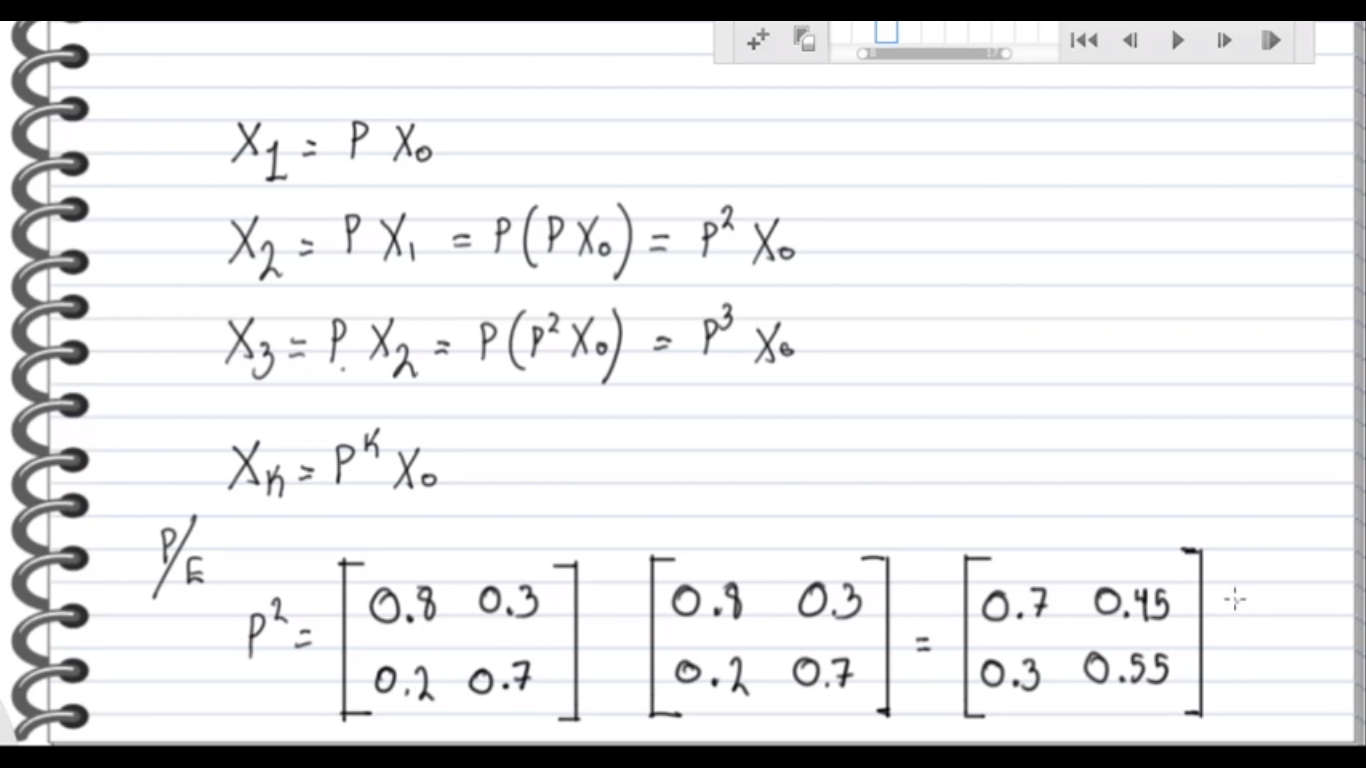 X₁ = P X₀
X₂ = P X₁ = P(P X₀) = P² X₀
X₃ = P. X₂ = P(P² X₀) = P³ X₀
X_K = P^K X₀
P/E
P² = [0.8 0.3; 0.2 0.7] [0.8 0.3; 0.2 0.7] = [0.7 0.45; 0.3 0.55]